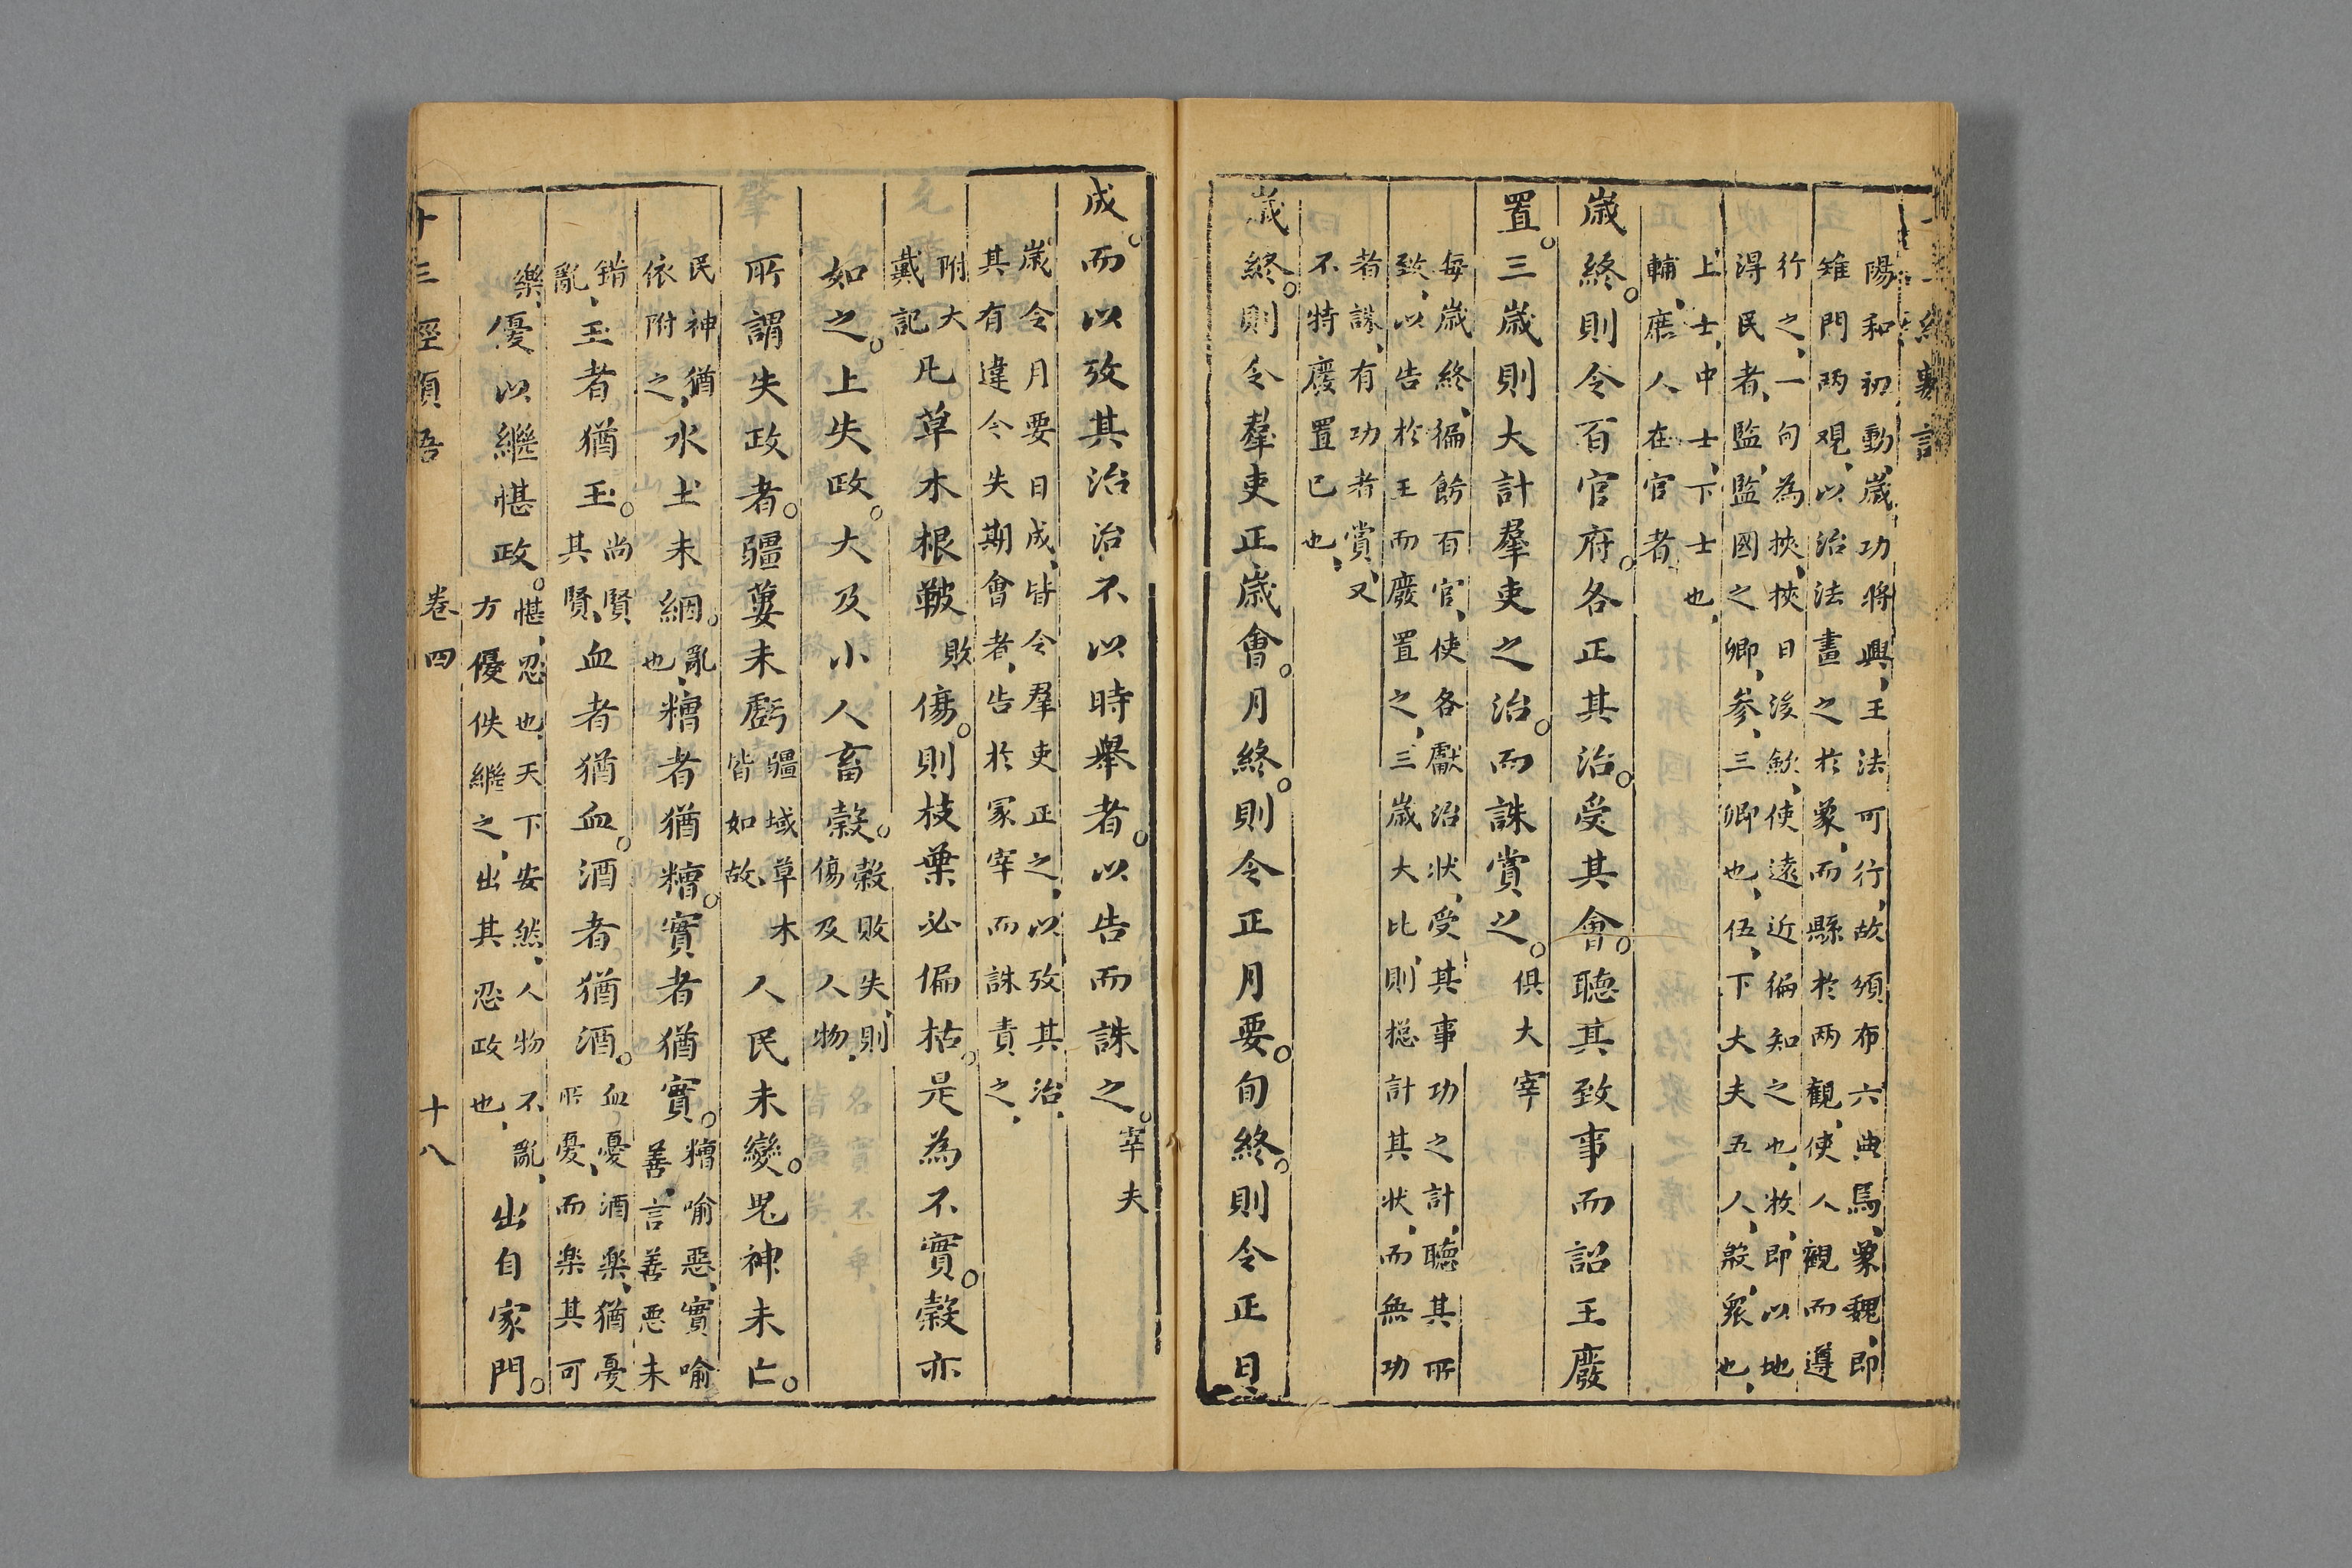 陽和初動、歲功將興、王法可行、故頒布六典焉、象魏、即
雉門两观、以治法畫之於象、而縣於两觀、使人觀而遵
行之、一句為挾、挾日後斂、使遠近徧知之也、牧、即以地
得民者、監、監國之卿、参、三卿也、伍、下大夫五人、殷、衆也、
上士、中士、下士也、
輔、庶人在官者、
歲終。則令百官府。各正其治。受其會。聽其致事而詔王廢
置。三歲則大計羣吏之治。而誅賞之。俱大宰
每歲終、徧飭百官、使各獻治状、受其事功之計、聽其所
致、以告於王而廢置之、三歲大比、則捴計其状、而無功
者誅、有功者賞、又
不特廢置已也、
歲終。則令羣吏正歲會。月終。則令正月要。旬終。則令正日
成。而以攷其治治不以時舉者。以告而誅之。宰夫
歲令月要日成、皆令羣吏正之、以攷其治、
其有違令失期會者、告於冢宰而誅責之、
附大
戴記
凡草木根鞁敗傷。則枝葉必偏枯。是為不實。穀亦
如之。上失政。大及小人畜穀。
穀敗失、則
傷及人物、
所謂失政者。疆蔞未虧
疆域草木
皆如故、
人民未變。鬼神未亡。
民神猶
依附之、
水土未絪。
亂
也、
糟者猶糟。實者猶實。
糟喻惡、實喻
善、言善悪未
錯、
亂、
玉者猶玉。
尚賢
其賢、
血者猶血。酒者猶酒。
血憂酒楽、猶憂
所憂、而楽其可
樂、
優以繼愖政。
愖、忍也、天下安然、人物不亂、
方優佚繼之、出其忍政也、
出自家門。
十三經類語
卷四
十八